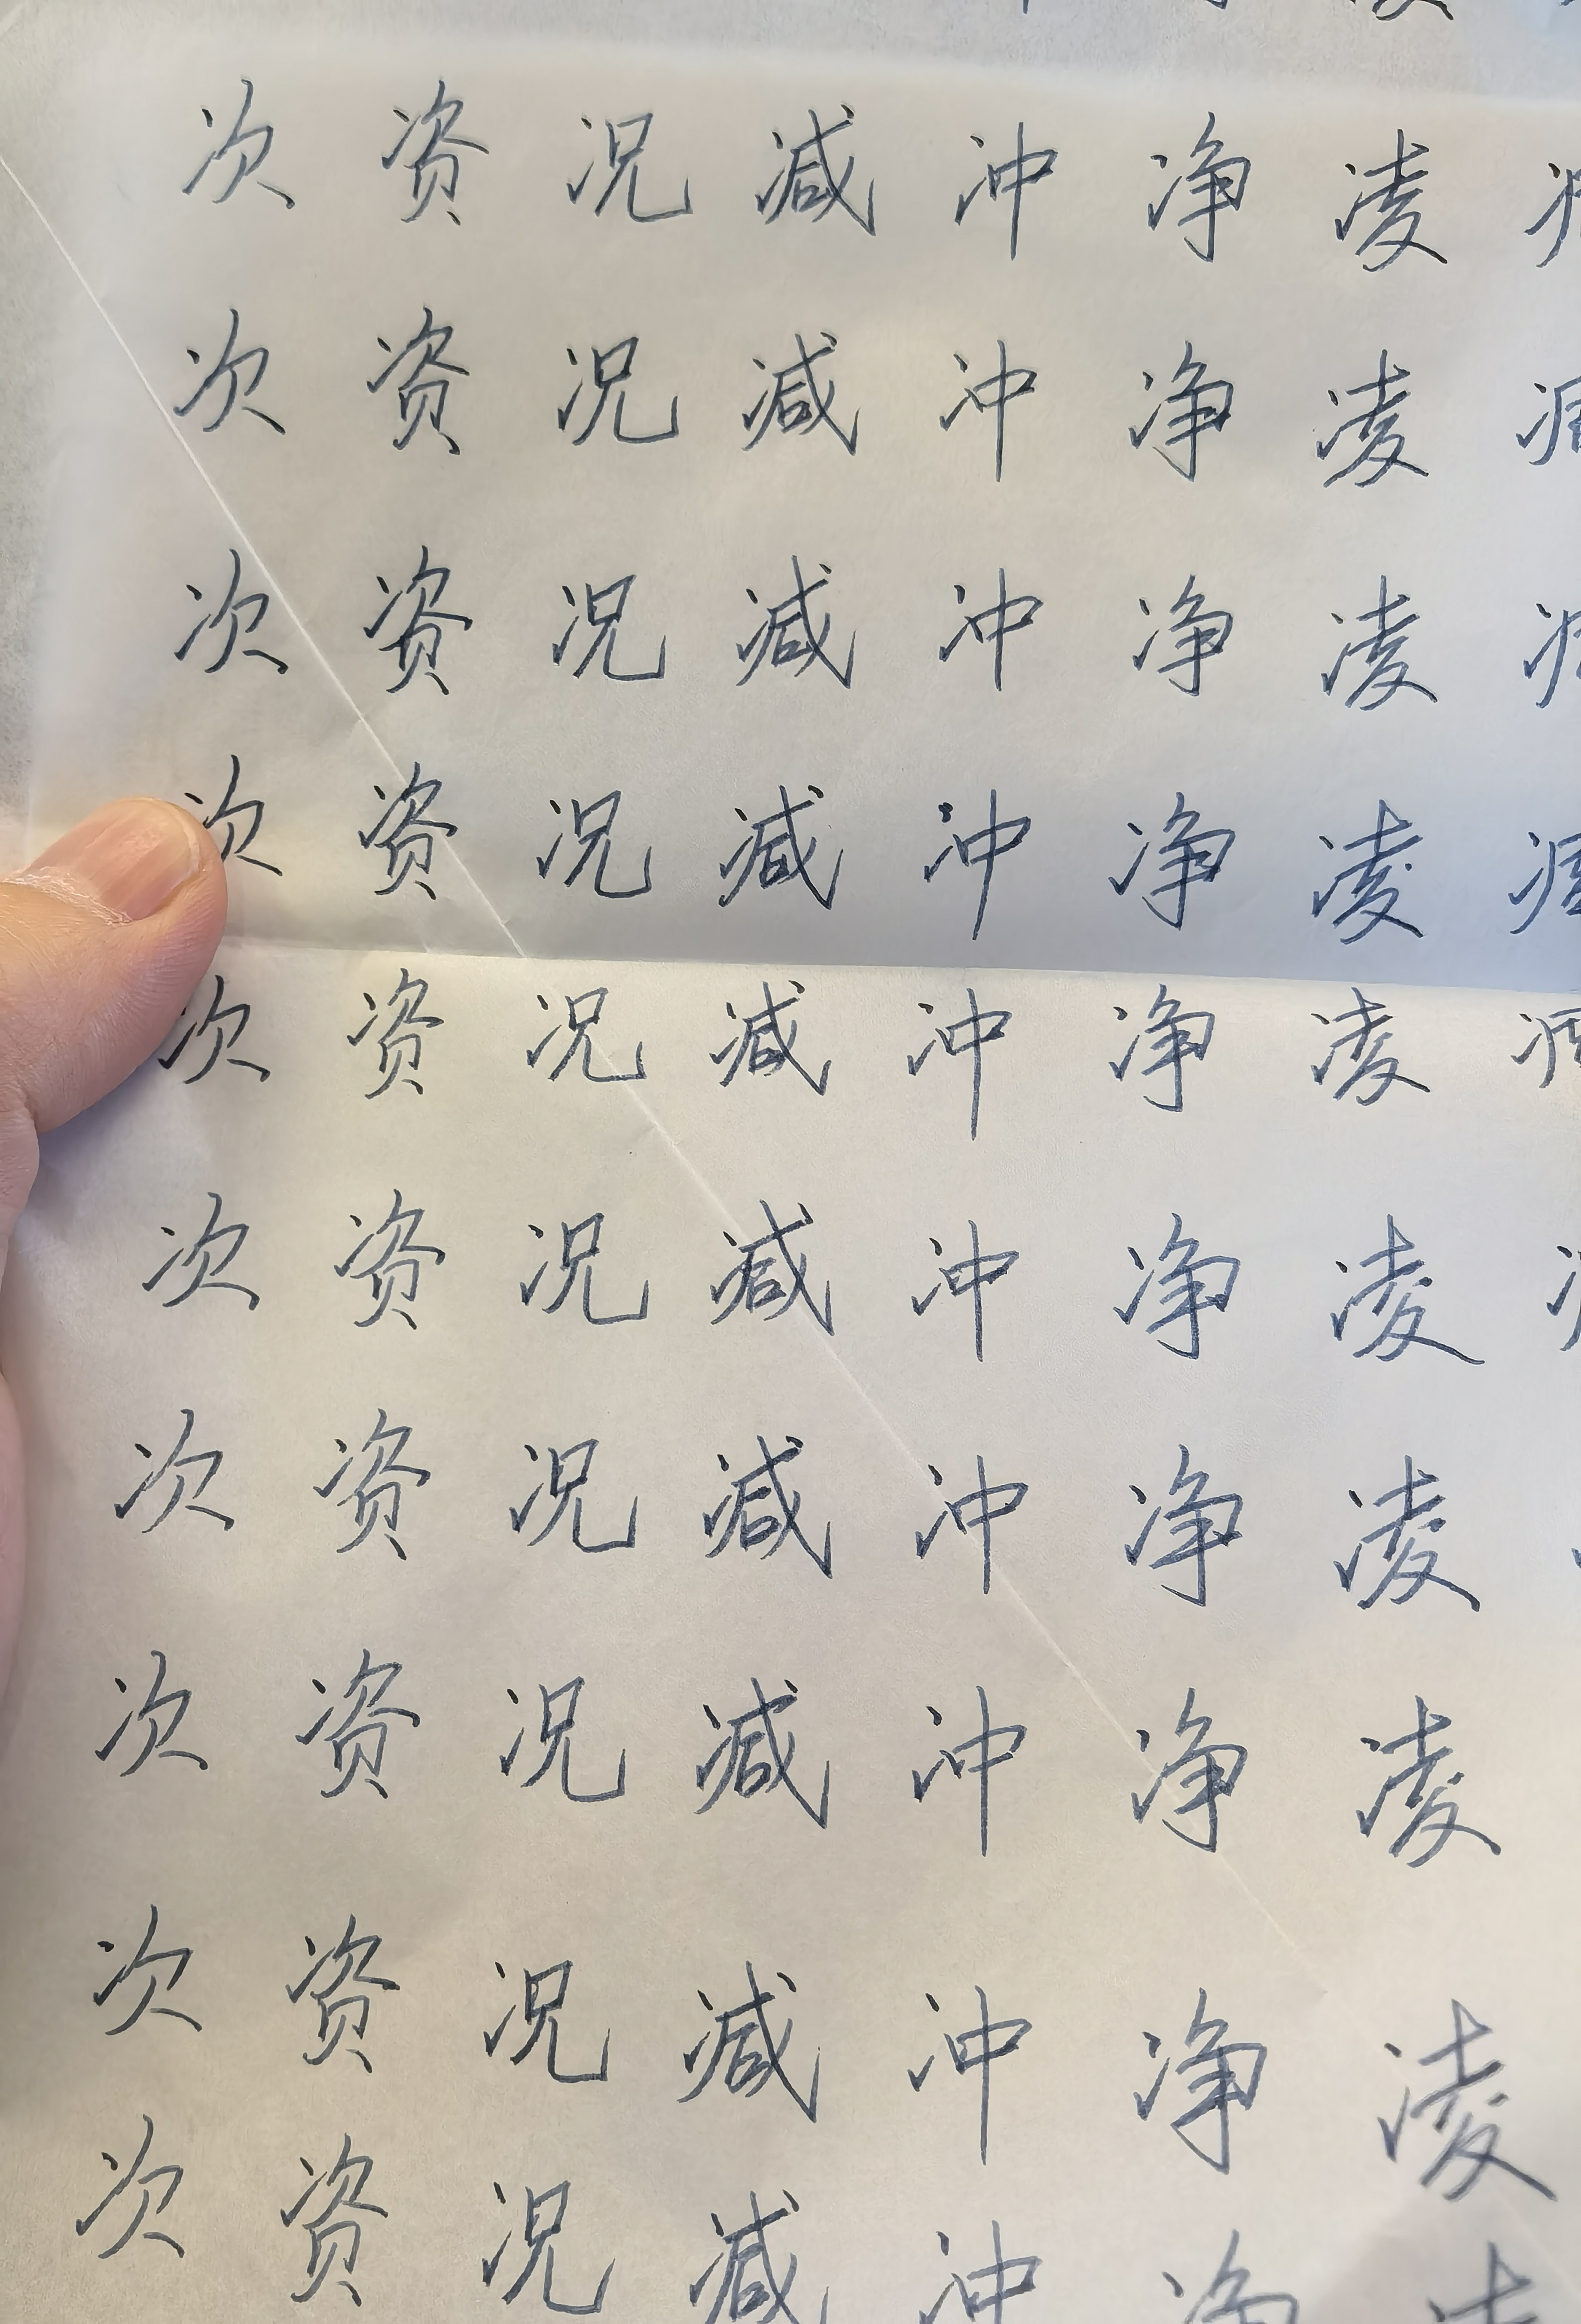 次 资 况 减 冲 净 凌
次 资 况 减 冲 净 凌
次 资 况 减 冲 净 凌
次 资 况 减 冲 净 凌
次 资 况 减 冲 净 凌
次 资 况 减 冲 净 凌
次 资 况 减 冲 净 凌
次 资 况 减 冲 净 凌
次 资 况 减 冲 净 凌
次 资 况 减 冲